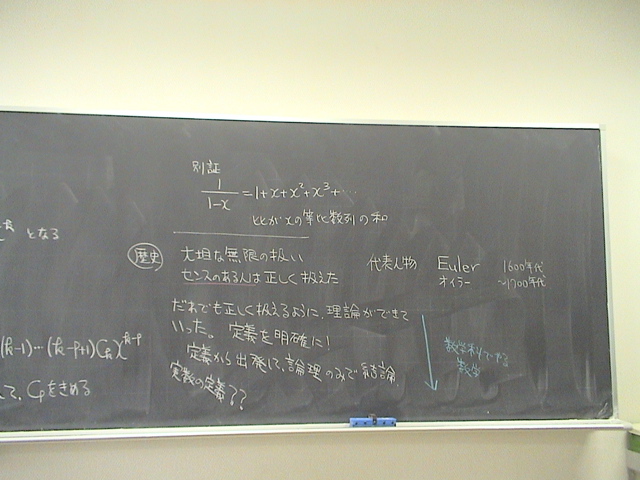 別証
1/(1-x) = 1+x+x²+x³+....
比がxの等比数列の和
となる
歴史 大胆な無限の扱い
センスのある人は正しく扱えた
代表人物 Euler 1600年代
オイラー ~1700年代
だれでも正しく扱えるように,理論ができて
いった。 定義を明確に!
定義から出発して,論理のみで結論
実数の定義??
数学科でやる
数学
(k-1)…(k-p+1)Cₖxᵏ⁻ᵖ
て, Cpをきめる